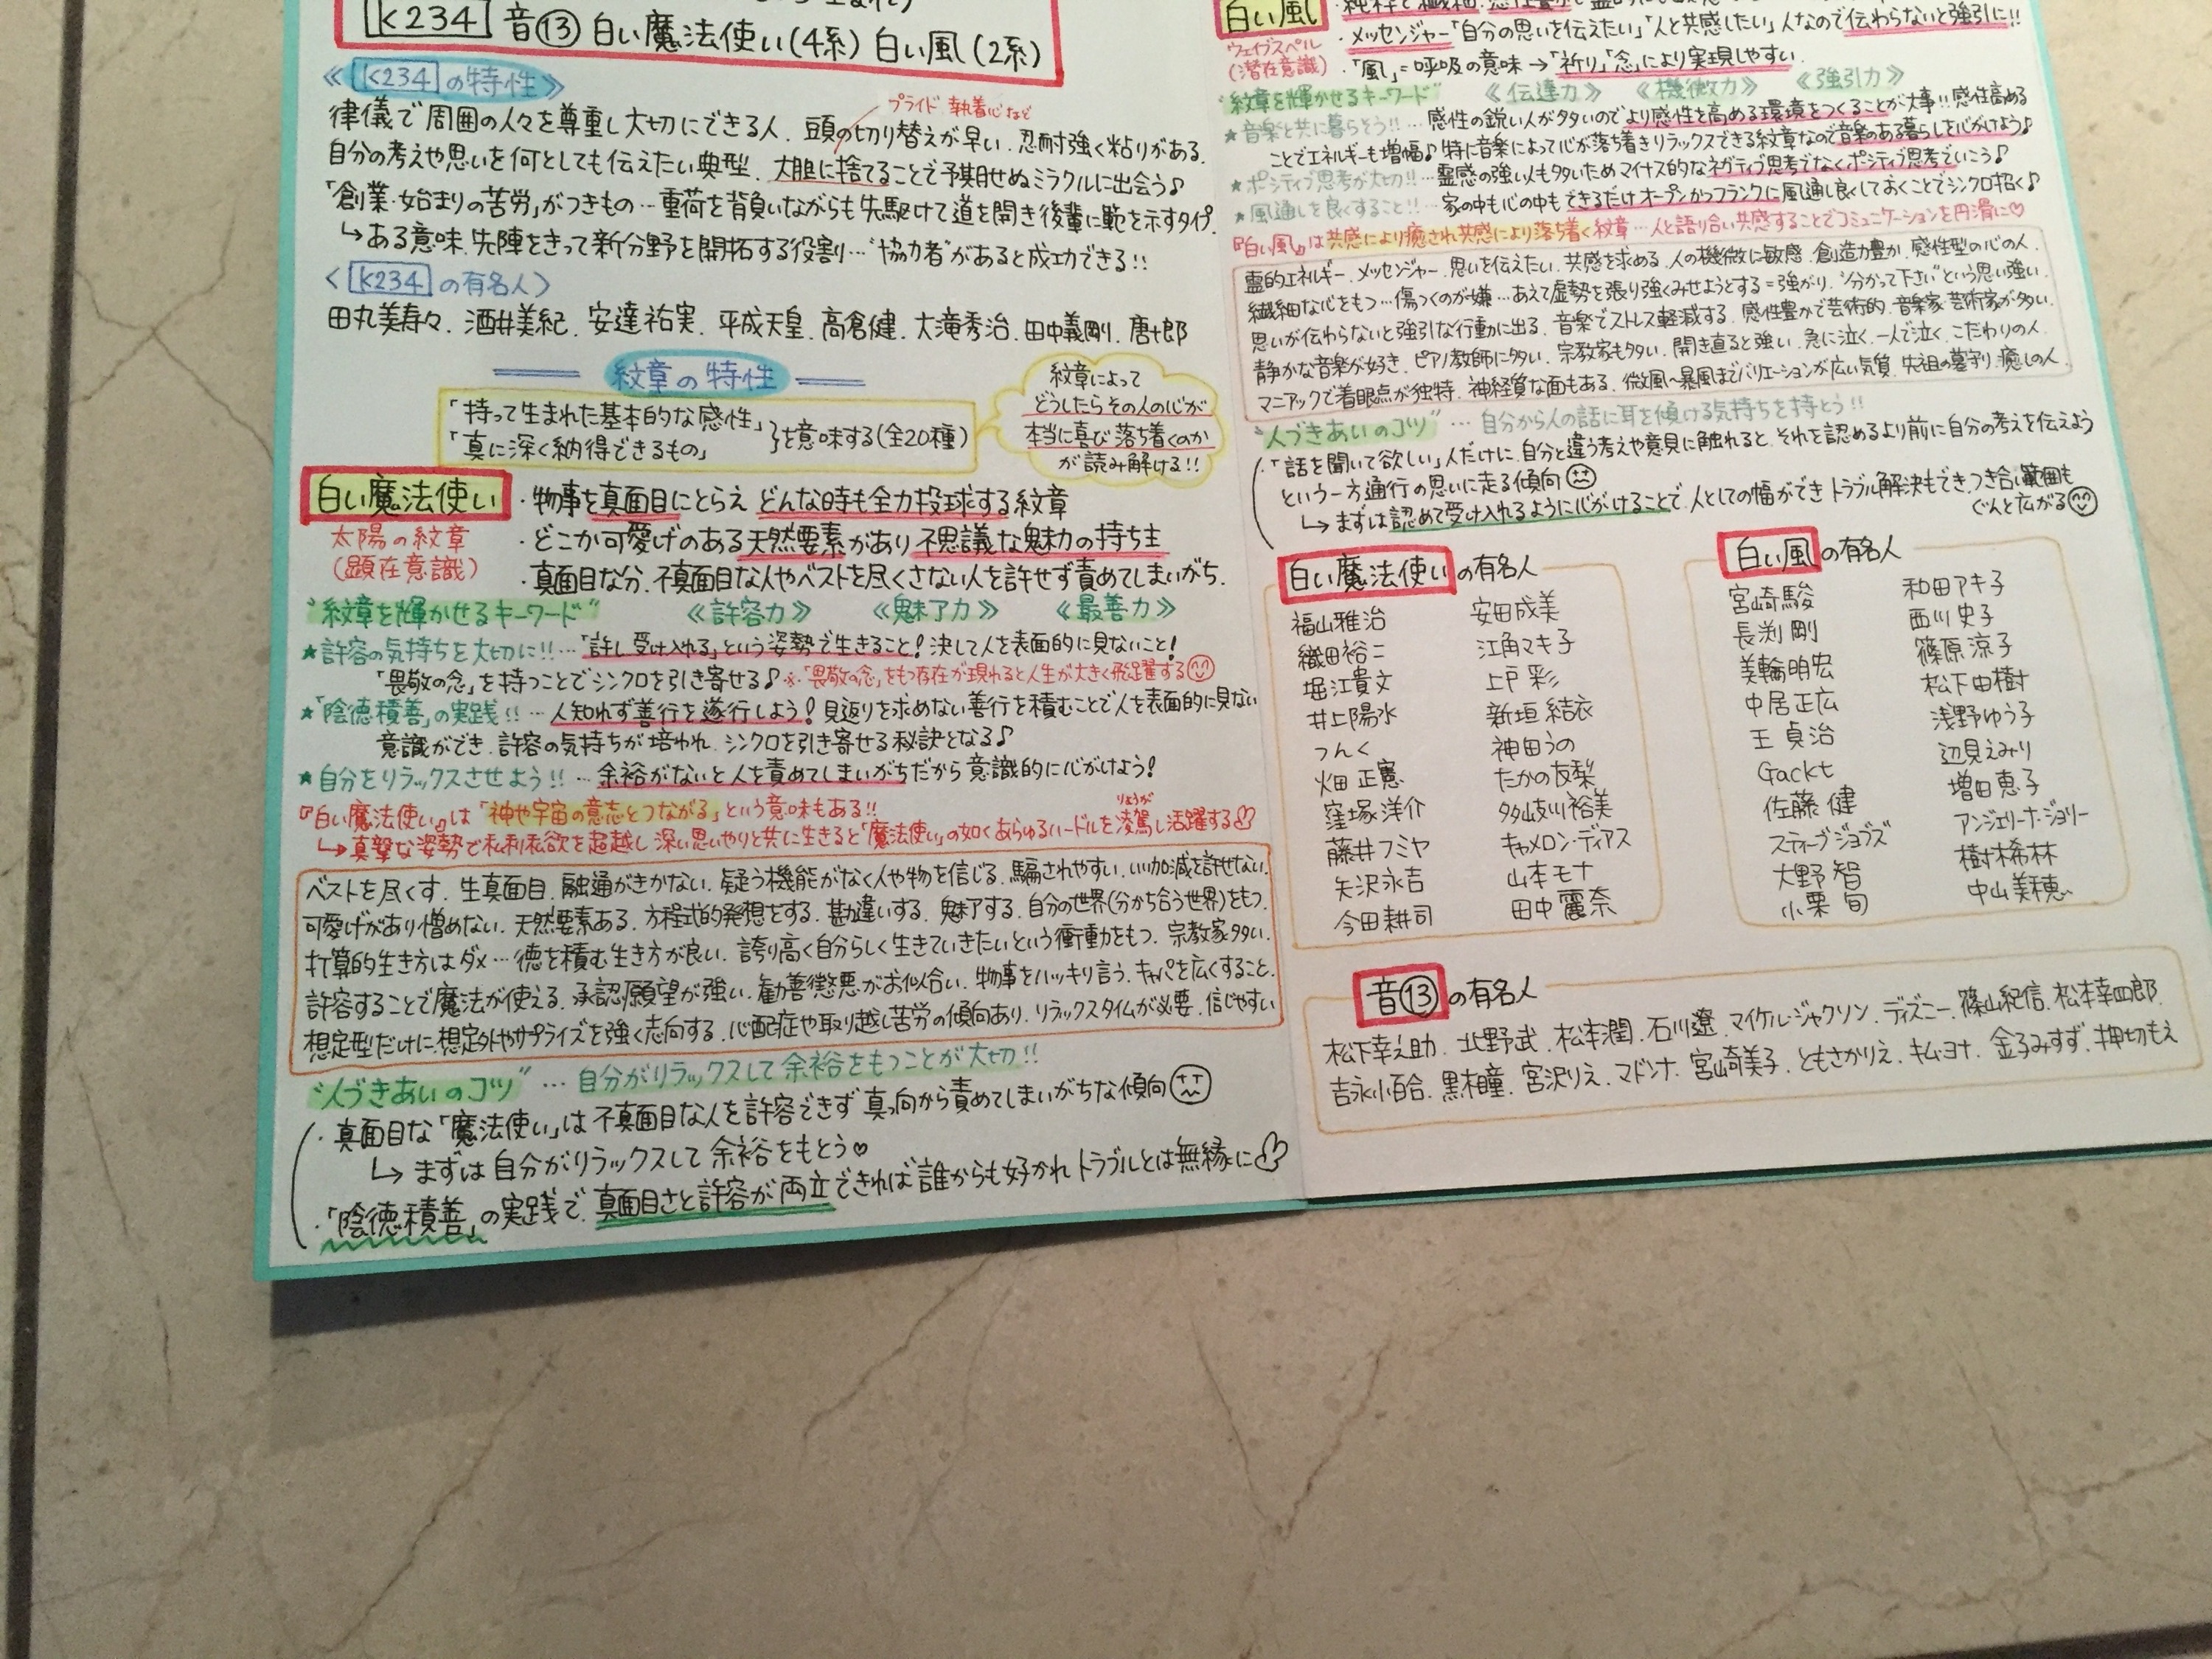 K234 音⑬ 白い魔法使い(4系) 白い風(2系)
《K234の特性》
プライド 執着心など
律儀で周囲の人々を尊重し大切にできる人．頭の切り替えが早い．忍耐強く粘りがある．
自分の考えや思いを何としても伝えたい典型．大胆に捨てることで予期せぬミラクルに出会う♪
「創業・始まりの苦労」がつきもの…重荷を背負いながらも先駆けて道を開き後輩に範を示すタイプ．
↳ある意味、先陣をきって新分野を開拓する役割…"協力者"があると成功できる!!
〈K234の有名人〉
田丸美寿々．酒井美紀．安達祐実．平成天皇．高倉健．大滝秀治．田中義剛．唐十郎
紋章の特性
「持って生まれた基本的な感性」
「真に深く納得できるもの」
}を意味する(全20種)
紋章によって
どうしたらその人の心が
本当に喜び落ち着くのか
が読み解ける!!
白い魔法使い
太陽の紋章
(顕在意識)
・物事を真面目にとらえ どんな時も全力投球する紋章
・どこか可愛げのある天然要素があり不思議な魅力の持ち主
・真面目な分、不真面目な人やベストを尽くさない人を許せず責めてしまいがち．
"紋章を輝かせるキーワード" 《許容力》 《魅了力》 《最善力》
★許容の気持ちを大切に!!…「許し受け入れる」という姿勢で生きること！決して人を表面的に見ないこと！
「畏敬の念」を持つことでシンクロを引き寄せる♪※「畏敬の念」をもつ存在が現れると人生が大きく飛躍する
★「陰徳積善」の実践!!…人知れず善行を遂行しよう！見返りを求めない善行を積むことで人を表面的に見ない
意識ができ、許容の気持ちが培われ、シンクロを引き寄せる秘訣となる♪
★自分をリラックスさせよう!!…余裕がないと人を責めてしまいがちだから意識的に心がけよう！
『白い魔法使い』は「神や宇宙の意志とつながる」という意味もある!!
↳真摯な姿勢で私利私欲を超越し深い思いやりと共に生きると「魔法使い」の如くあらゆるハードルを凌駕し活躍する
りょうが
ベストを尽くす．生真面目．融通がきかない．疑う機能がなく人や物を信じる．騙されやすい．いい加減を許せない．
可愛げがあり憎めない．天然要素ある．方程式的発想をする．勘違いする．魅了する．自分の世界(分かち合う世界)をもつ．
打算的生き方はダメ…徳を積む生き方が良い．誇り高く自分らしく生きていきたいという衝動をもつ．宗教家多い．
許容することで魔法が使える．承認願望が強い．勧善懲悪がお似合い．物事をハッキリ言う．キャパを広くすること．
想定型だけに、想定外やサプライズを強く志向する．心配症や取り越し苦労の傾向あり．リラックスタイムが必要．信じやすい
"人づきあいのコツ" …自分がリラックスして余裕をもつことが大切!!
・真面目な「魔法使い」は不真面目な人を許容できず真っ向から責めてしまいがちな傾向
↳まずは自分がリラックスして余裕をもとう♡
・「陰徳積善」の実践で、真面目さと許容が両立できれば誰からも好かれトラブルとは無縁に
白い風
ウェイブスペル
(潜在意識)
・メッセンジャー「自分の思いを伝えたい」「人と共感したい」人なので伝わらないと強引に!!
・「風」=呼吸の意味→「祈り」「念」により実現しやすい．
"紋章を輝かせるキーワード" 《伝達力》 《機微力》 《強引力》
★音楽と共に暮らそう!!…感性の鋭い人が多いのでより感性を高める環境をつくることが大事!!感性高める
ことでエネルギーも増幅♪特に音楽によって心が落ち着きリラックスできる紋章なので音楽のある暮らしを心がけよう♪
★ポジティブ思考が大切!!…霊感の強い人も多いためマイナス的なネガティブ思考でなくポジティブ思考でいこう♪
★風通しを良くすること!!…家の中も心の中もできるだけオープンかつフランクに風通し良くしておくことでシンクロ招く♪
『白い風』は共感により癒され共感により落ち着く紋章…人と語り合い共感することでコミュニケーションを円滑に♡
霊的エネルギー．メッセンジャー．思いを伝えたい．共感を求める．人の機微に敏感．創造力豊か．感性型の心の人．
繊細な心をもつ…傷つくのが嫌…あえて虚勢を張り強くみせようとする=強がり．"分かって下さい"という思い強い．
思いが伝わらないと強引な行動に出る．音楽でストレス軽減する．感性豊かで芸術的．音楽家 芸術家が多い．
静かな音楽が好き．ピアノ教師に多い．宗教家も多い．開き直ると強い．急に泣く．一人で泣く．こだわりの人．
マニアックで着眼点が独特．神経質な面もある．微風〜暴風までバリエーションが広い気質．先祖の墓守り．癒しの人．
"人づきあいのコツ" …自分から人の話に耳を傾ける気持ちを持とう!!
・「話を聞いて欲しい」人だけに、自分と違う考えや意見に触れると、それを認めるより前に自分の考えを伝えよう
という一方通行の思いに走る傾向
↳まずは認めて受け入れるように心がけることで、人としての幅ができトラブル解決もでき、つき合い範囲も
ぐんと広がる
白い魔法使いの有名人
福山雅治 安田成美
織田裕二 江角マキ子
堀江貴文 上戸彩
井上陽水 新垣結衣
つんく 神田うの
畑正憲 たかの友梨
窪塚洋介 多岐川裕美
藤井フミヤ キャメロン・ディアス
矢沢永吉 山本モナ
今田耕司 田中麗奈
白い風の有名人
宮崎駿 和田アキ子
長渕剛 西川史子
美輪明宏 篠原涼子
中居正広 松下由樹
王貞治 浅野ゆう子
Gackt 辺見えみり
佐藤健 増田恵子
スティーブ・ジョブズ アンジェリーナ・ジョリー
大野智 樹木希林
小栗旬 中山美穂
音⑬の有名人
松下幸之助．北野武．松本潤．石川遼．マイケル・ジャクソン．ディズニー．篠山紀信．松本幸四郎．
吉永小百合．黒木瞳．宮沢りえ．マドンナ．宮崎美子．ともさかりえ．キム・ヨナ．金子みすず．押切もえ